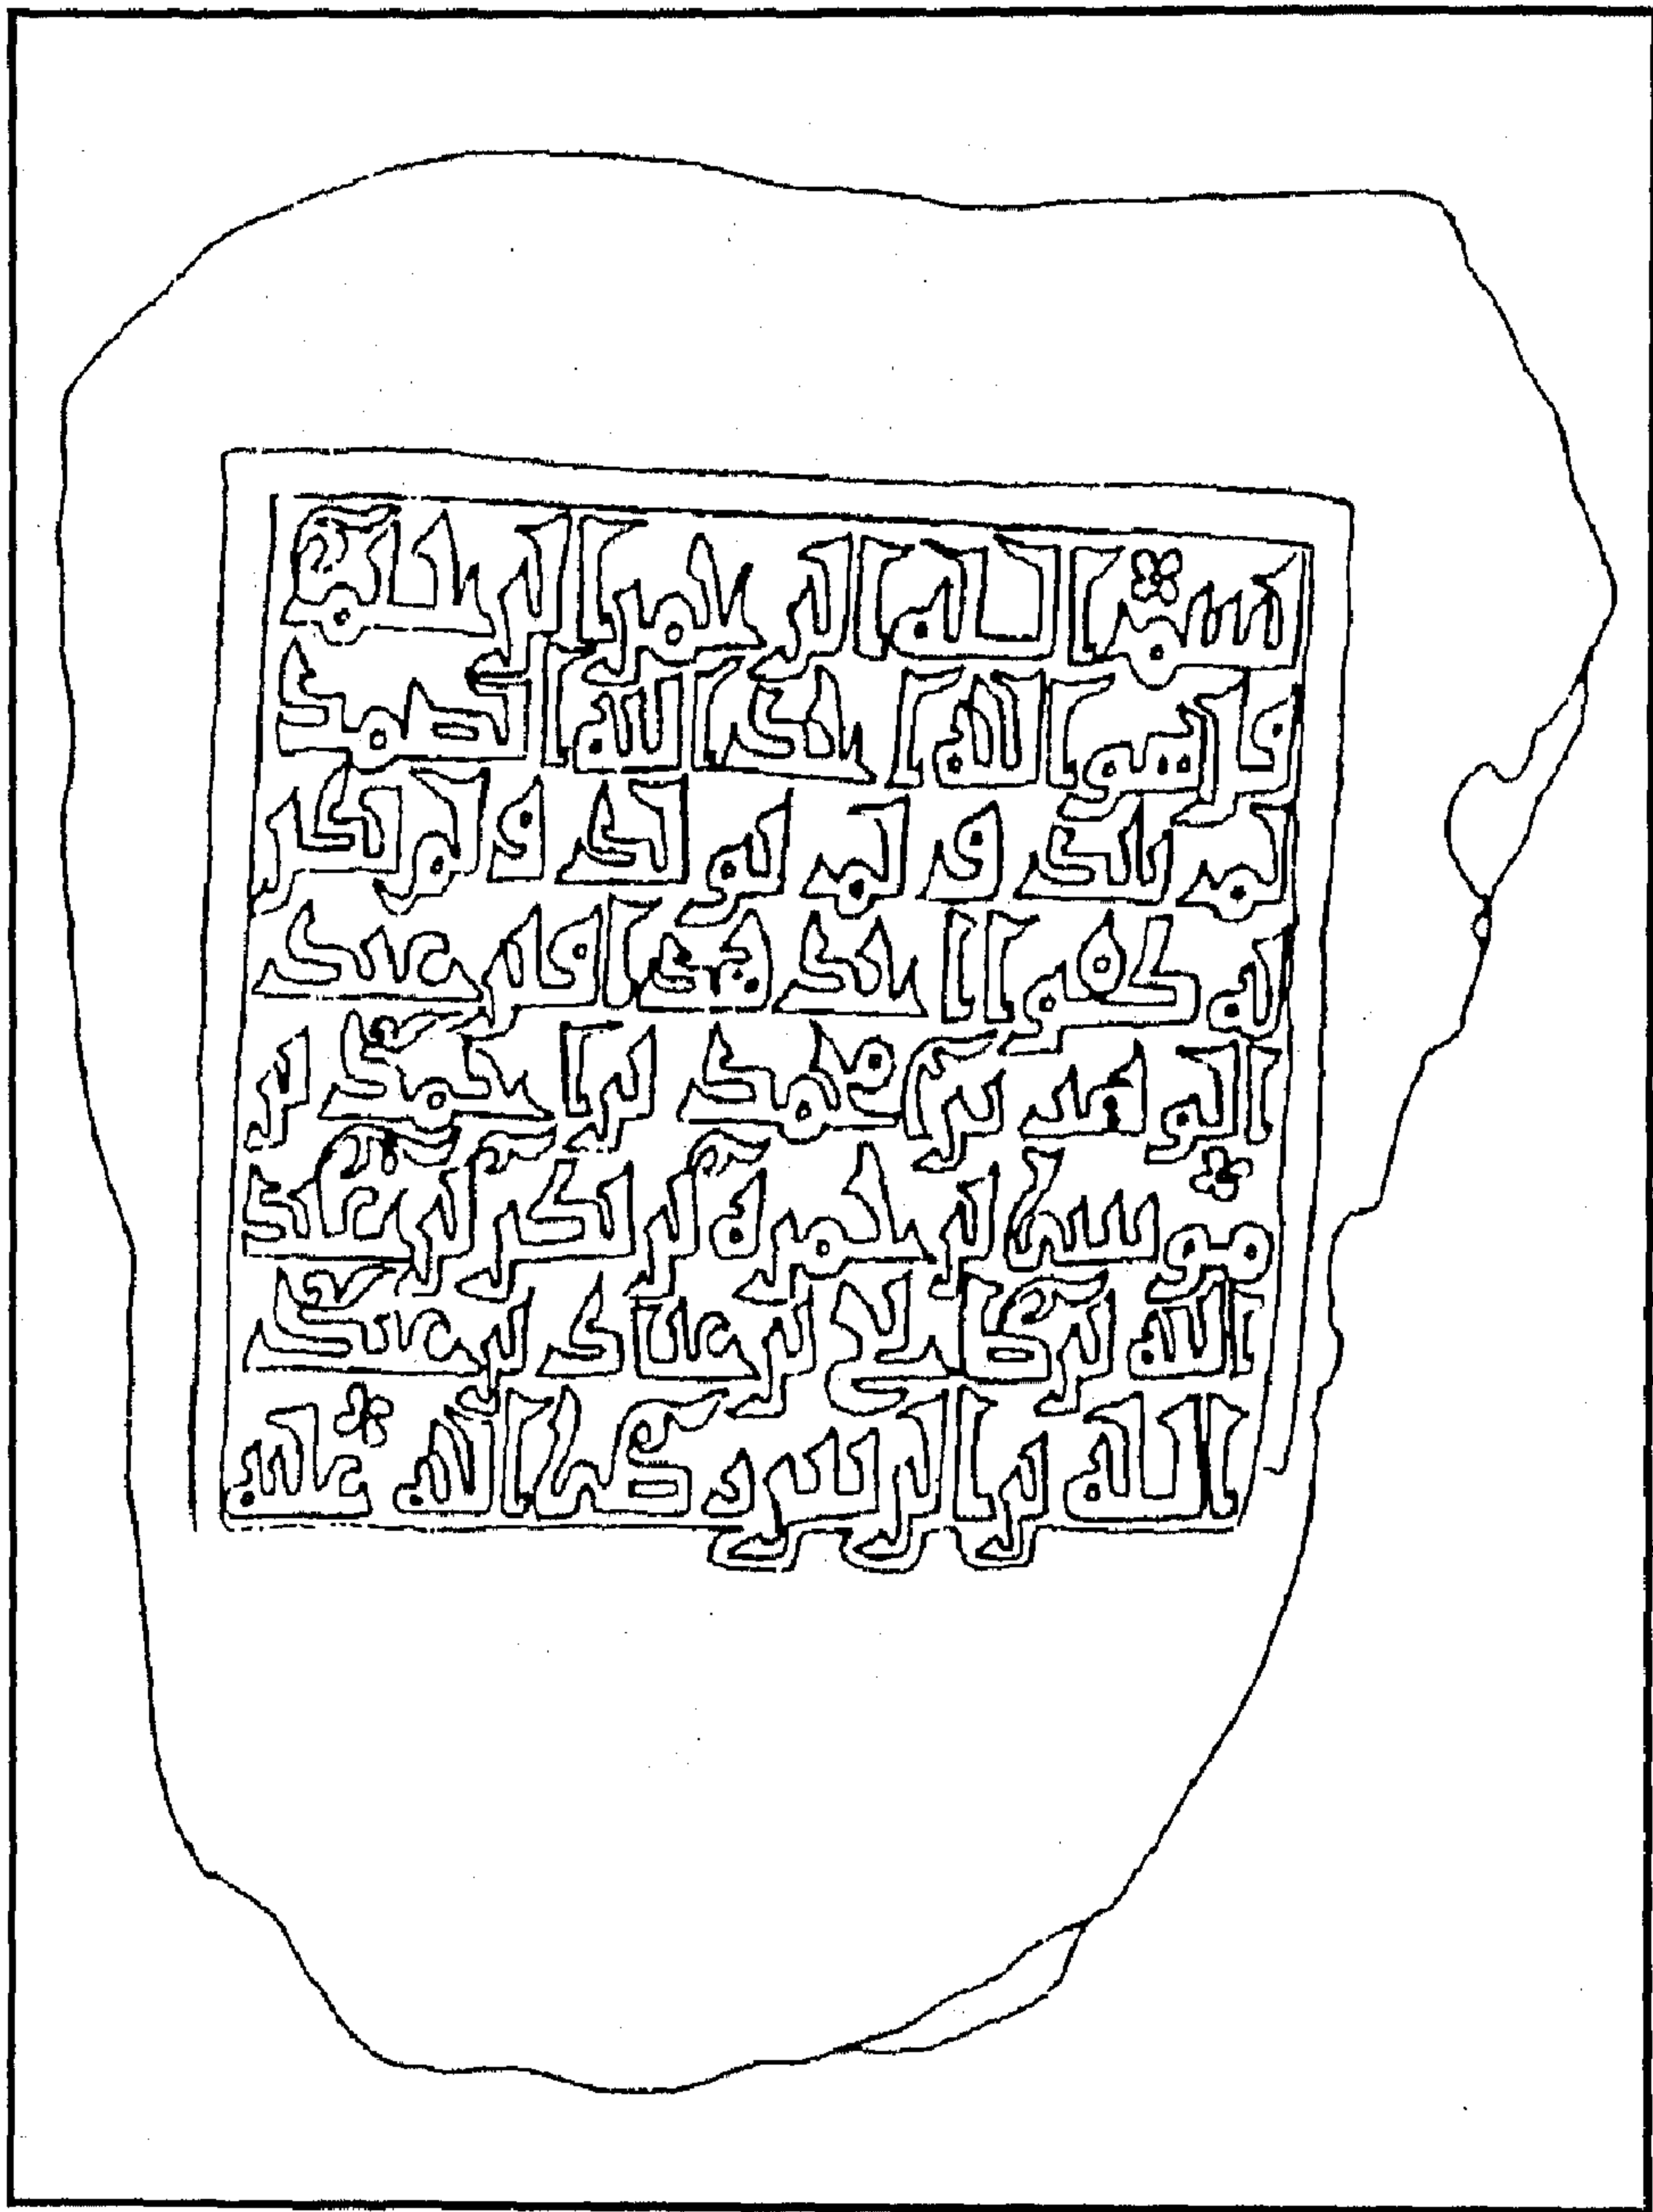 بسم الله الرحمن الرحيم
قل هو الله احد الله الصمد
لم يلد ولم يولد ولم يكن
له كفوا احد هذا قبر عبد
الواحد بن محمد بن احمد بن
موسى بن حمزه بن بكر بن عبد
الله بن صالح بن عباد بن عبد
الله بن الزبير رضى الله عليه